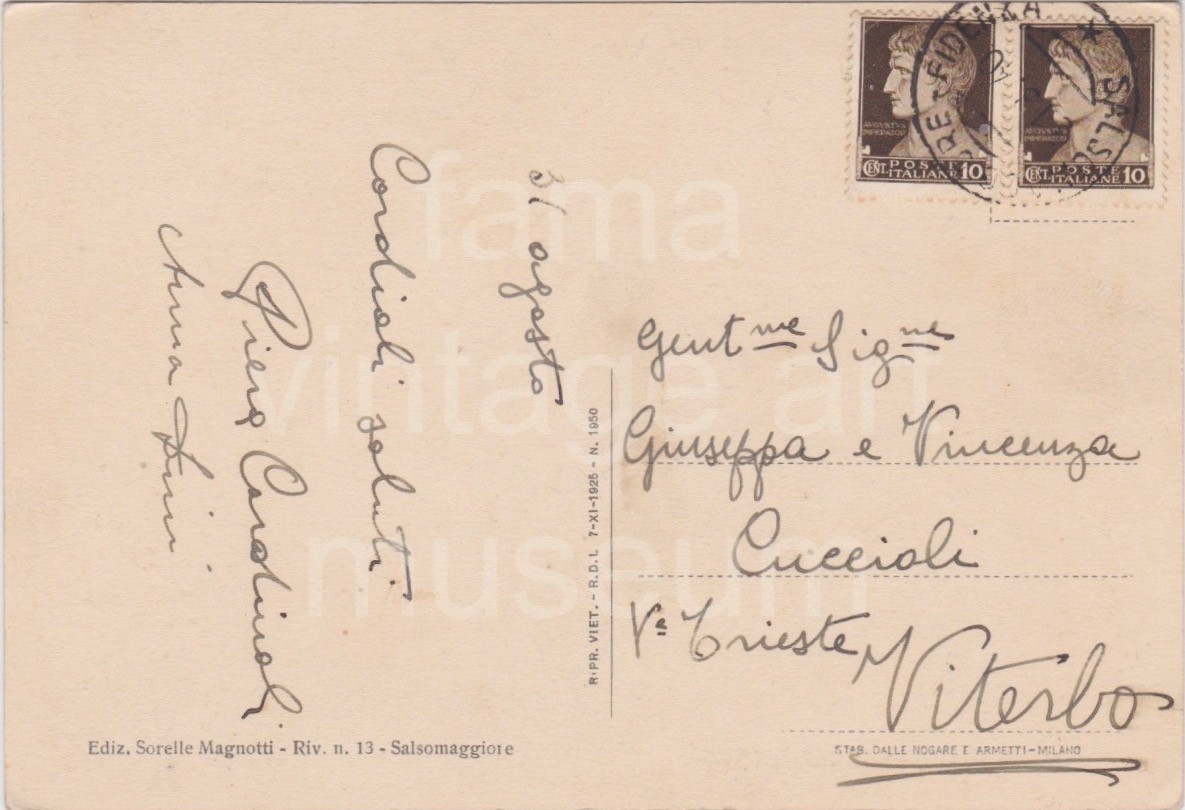 31 agosto
Cordiali saluti
Piera Cardinali
Anna
Gent.me Sig.ne
Giuseppa e Vincenza
Cuccioli
Va Trieste
Viterbo
RIPR. VIET. - R.D.L. 7-XI-1925 - N. 1950
Ediz. Sorelle Magnotti - Riv. n. 13 - Salsomaggiore
STAB. DALLE NOGARE E ARMETTI-MILANO
AVGVSTVS
IMPERATOR
CENT. POSTE ITALIANE 10
AVGVSTVS
IMPERATOR
CENT. POSTE ITALIANE 10
fama
vintage art
museum